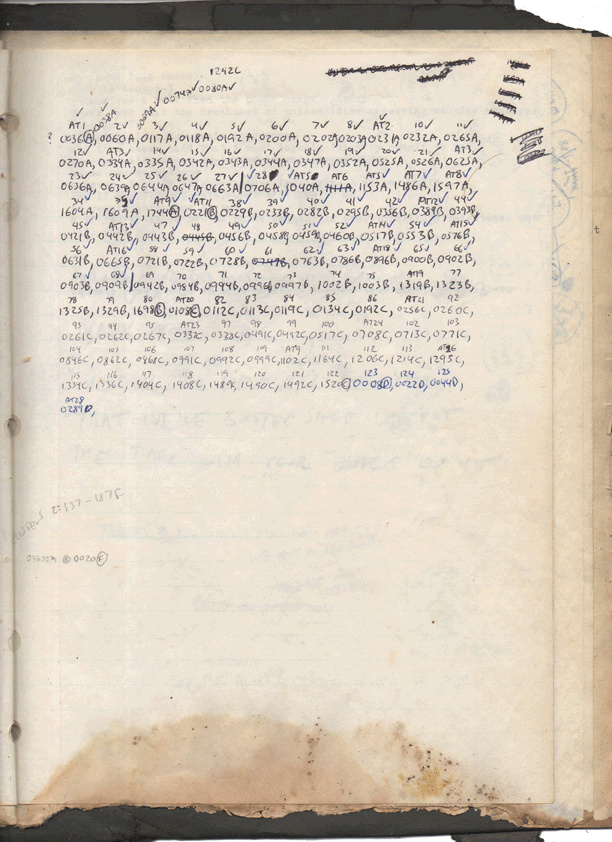 1242C
0058A 0074A 0080A
AT1 2 3 4 5 6 7 8 AT2 10 11
? 0036A, 0060A, 0117A, 0118A, 0192A, 0200A, 0202A, 0203A, 0231A, 0232A, 0265A,
12 AT3 14 15 16 17 18 19 20 21 AT3
0270A, 0334A, 0335A, 0342A, 0343A, 0344A, 0347A, 0352A, 0525A, 0526A, 0625A,
23 24 25 26 27 28 AT5 AT6 AT5 AT7 AT8
0636A, 0639A, 0644A, 0647A, 0663A, 0706A, 1040A, 1153A, 1486A, 1597A,
34 35 AT9 AT11 38 39 40 41 42 AT12 44
1604A, 1609A, 1744A, 0221B, 0229B, 0233B, 0282B, 0295B, 0356B, 0389B, 0393B,
45 AT13 47 48 49 50 51 52 AT14 54 AT15
0421B, 0442B, 0443B, 0445B, 0456B, 0458B, 0459B, 0460B, 0517B, 0553B, 0576B,
56 AT16 58 59 60 61 62 63 AT18 65 66
0631B, 0665B, 0721B, 0722B, 0728B, 0747B, 0763B, 0786B, 0896B, 0900B, 0902B,
67 68 69 70 71 72 73 74 75 AT19 77
0903B, 0909B, 0942B, 0984B, 0994B, 0996B, 0997B, 1002B, 1003B, 1319B, 1323B,
78 79 80 AT20 82 83 84 85 86 AT21 92
1325B, 1329B, 1698B, 0108C, 0112C, 0113C, 0119C, 0134C, 0192C, 0256C, 0260C,
93 94 95 AT23 97 98 99 100 AT24 102 103
0261C, 0262C, 0267C, 0337C, 0338C, 0491C, 0492C, 0517C, 0708C, 0713C, 0771C,
104 105 106 107 108 109 AT9 111 112 113
0846C, 0862C, 0868C, 0991C, 0992C, 0999C, 1102C, 1164C, 1206C, 1214C, 1295C,
115 116 117 118 119 120 121 122 123 124 125
1334C, 1336C, 1404C, 1408C, 1489C, 1490C, 1492C, 1520C, 0008D, 0022D, 0044D,
AT28
0289D,
2=137-187F
0020F